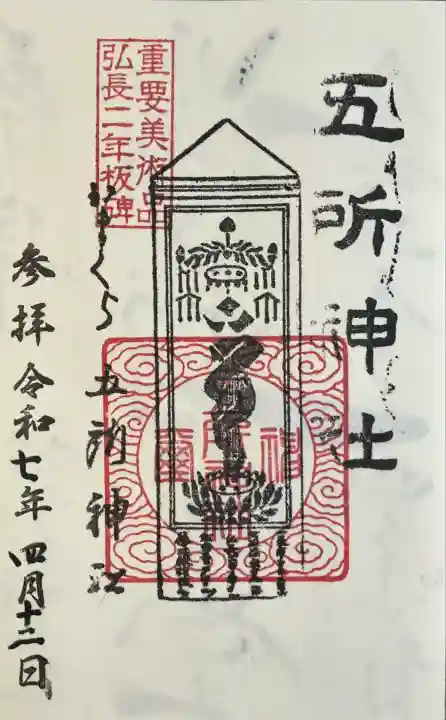 五所神社
重要美術品
弘長二年板碑
かまくら 五所神社
参拝 令和七年 四月十二日